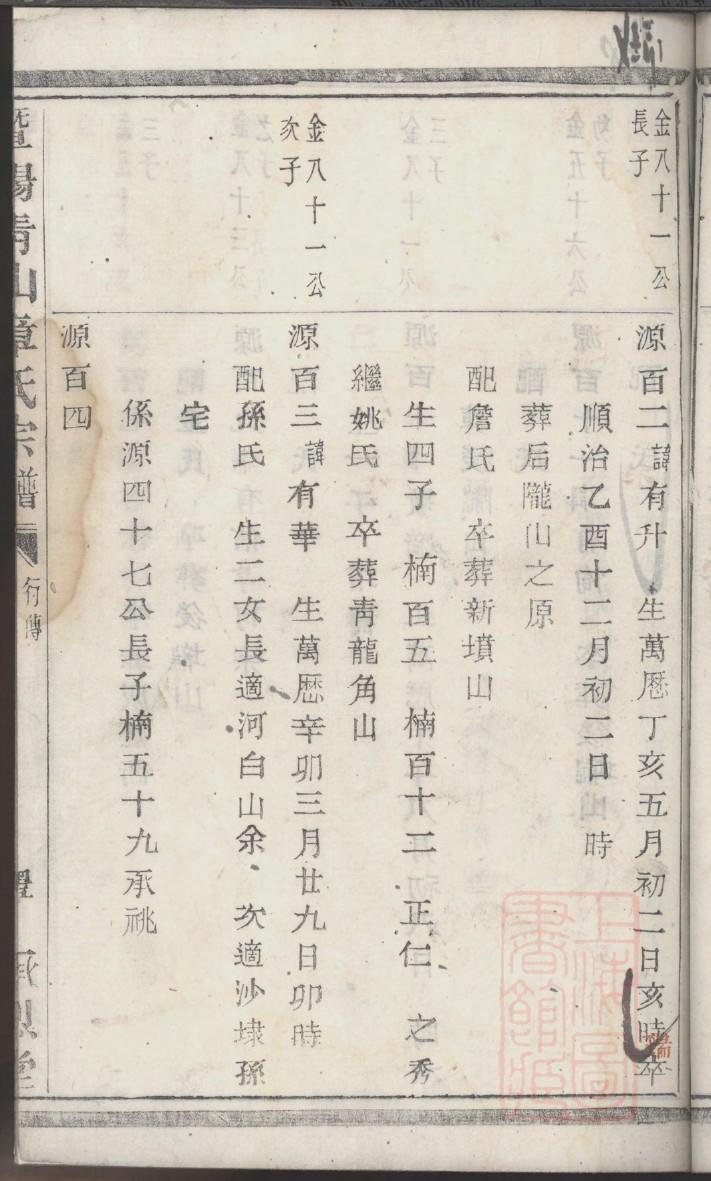 金八十一公
長子
源百二諱有升　生萬曆丁亥五月初二日亥時卒
順治乙酉十二月初二日　時
葬后隴山之原
配詹氏　卒葬新墳山
生四子　楠百五　楠百十二　正仁　之秀
繼姚氏　卒葬青龍角山
金八十一公
次子
源百三諱有華　生萬曆辛卯三月廿九日卯時
配孫氏　生二女長適河白山余　次適沙埭孫
宅
係源四十七公長子楠五十九承祧
源百四
暨陽青山章氏宗譜
行傳
上海圖
書館藏